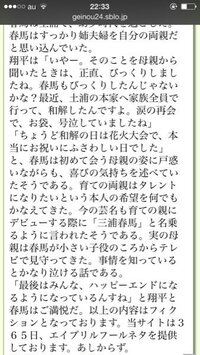 22:33
geinou24.sblo.jp
春馬はすっかり姉夫婦を自分の両親だ
と思い込んでいた。
翔平は「いやー。そのことを母親から
聞いたときは、正直、びっくりしまし
たね。春馬もびっくりしたんじゃない
かな？最近、土浦の本家へ家族全員で
行って、和解したんですよ。涙の再会
で、お袋、号泣していましたね」
「ちょうど和解の日は花火大会で、本
当にお祝いにふさわしい日でした」
と、春馬は初めて会う母親の姿に戸惑
いながらも、喜びの気持ちを述べてい
たそうである。育ての両親はタレント
になりたいという本人の希望を何でも
かなえてきた。今の芸名も育ての親に
デビューする際に「三浦春馬」と名乗
るように言われたそうである。実の母
親は春馬が小さい子役のころからテレ
ビで見守ってきた。事情を知っている
とかなり泣ける話である。
「最後はみんな、ハッピーエンドにな
るようになっているんすね」と翔平と
春馬はご満悦だ。以上の内容はフィク
ションとなっております。当サイトは３
６５日、エイプリルフールネタを提供
しております。あしからず。